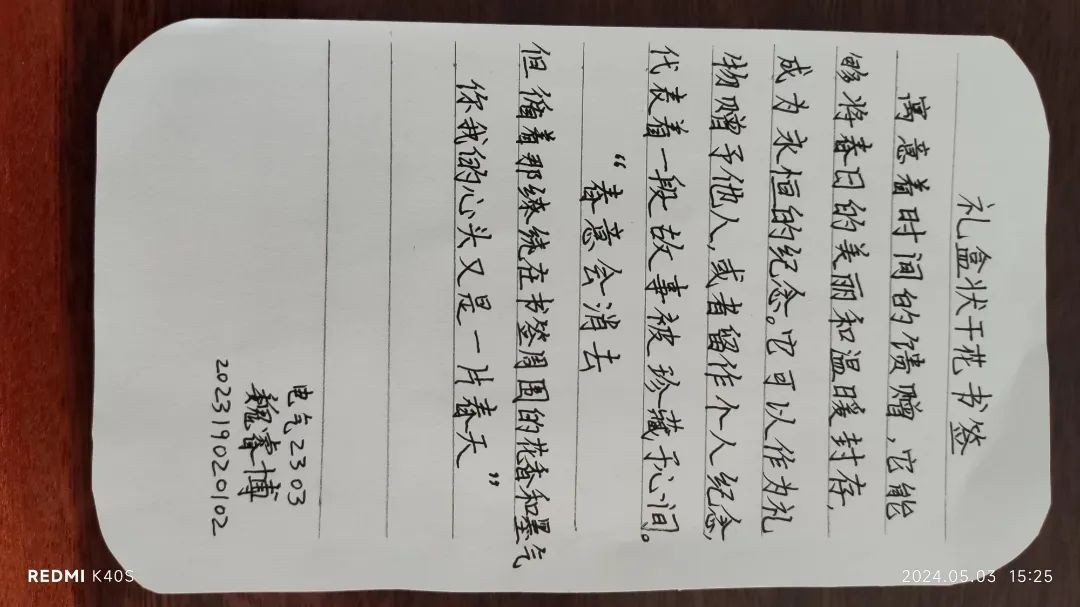 礼盒状干花书签
寓意着时间的馈赠,它能
够将春日的美丽和温暖封存,
成为永恒的纪念。它可以作为礼
物赠予他人,或者留作个人纪念,
代表着一段故事被珍藏于心间。
“春意会消去
但循着那缭绕在书签周围的花香和墨气
你我的心头又是一片春天”
电气2303
魏睿博
202319020102
REDMI K40S
2024.05.03 15:25